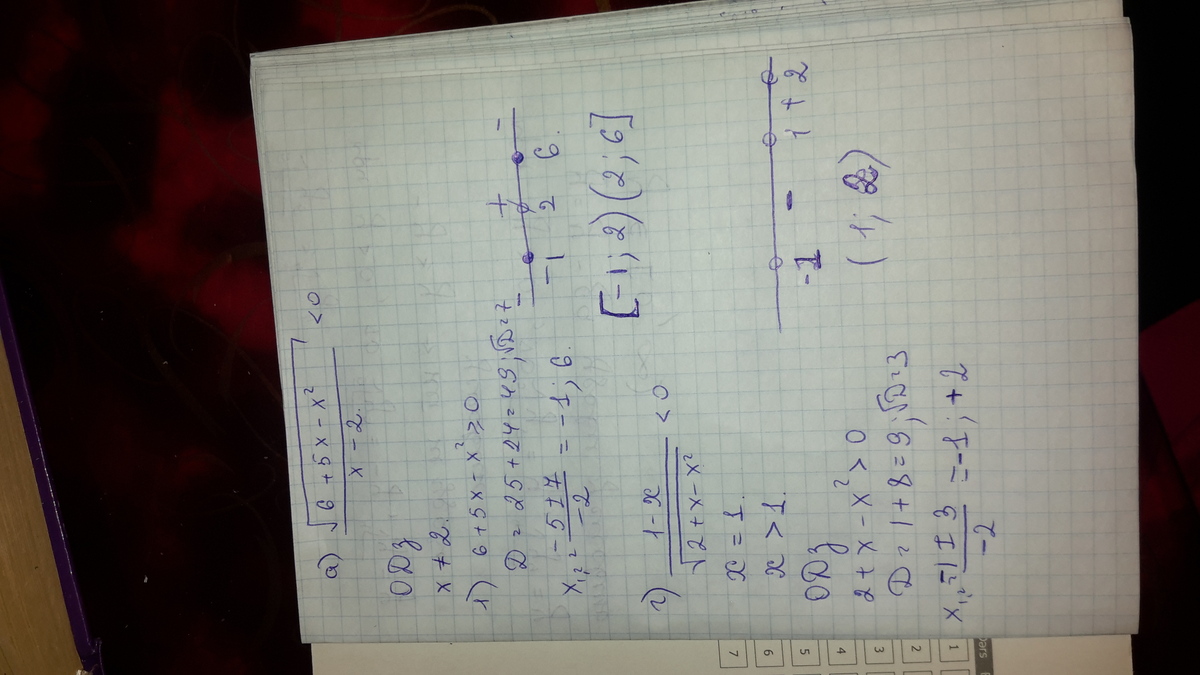 а) √(6 + 5x - x²) / (x - 2) < 0
ОДЗ
x ≠ 2.
1) 6 + 5x - x² ≥ 0.
D = 25 + 24 = 49; √D = 7
x₁,₂ = (-5 ± 7) / -2 = -1; 6.
- + -
-1 2 6.
[-1; 2) (2; 6]
г) (1 - x) / √(2 + x - x²) < 0
x = 1.
x > 1.
ОДЗ
2 + x - x² > 0
D = 1 + 8 = 9; √D = 3
x₁,₂ = (-1 ± 3) / -2 = -1; +2
-1 - 1 + 2
(1; 2)
ars
1
2
3
4
5
6
7